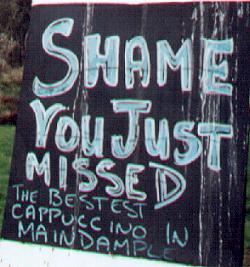 SHAME
YOU JUST
MISSED
THE BESTEST
CAPPUCCINO IN
MAINDAMPLE